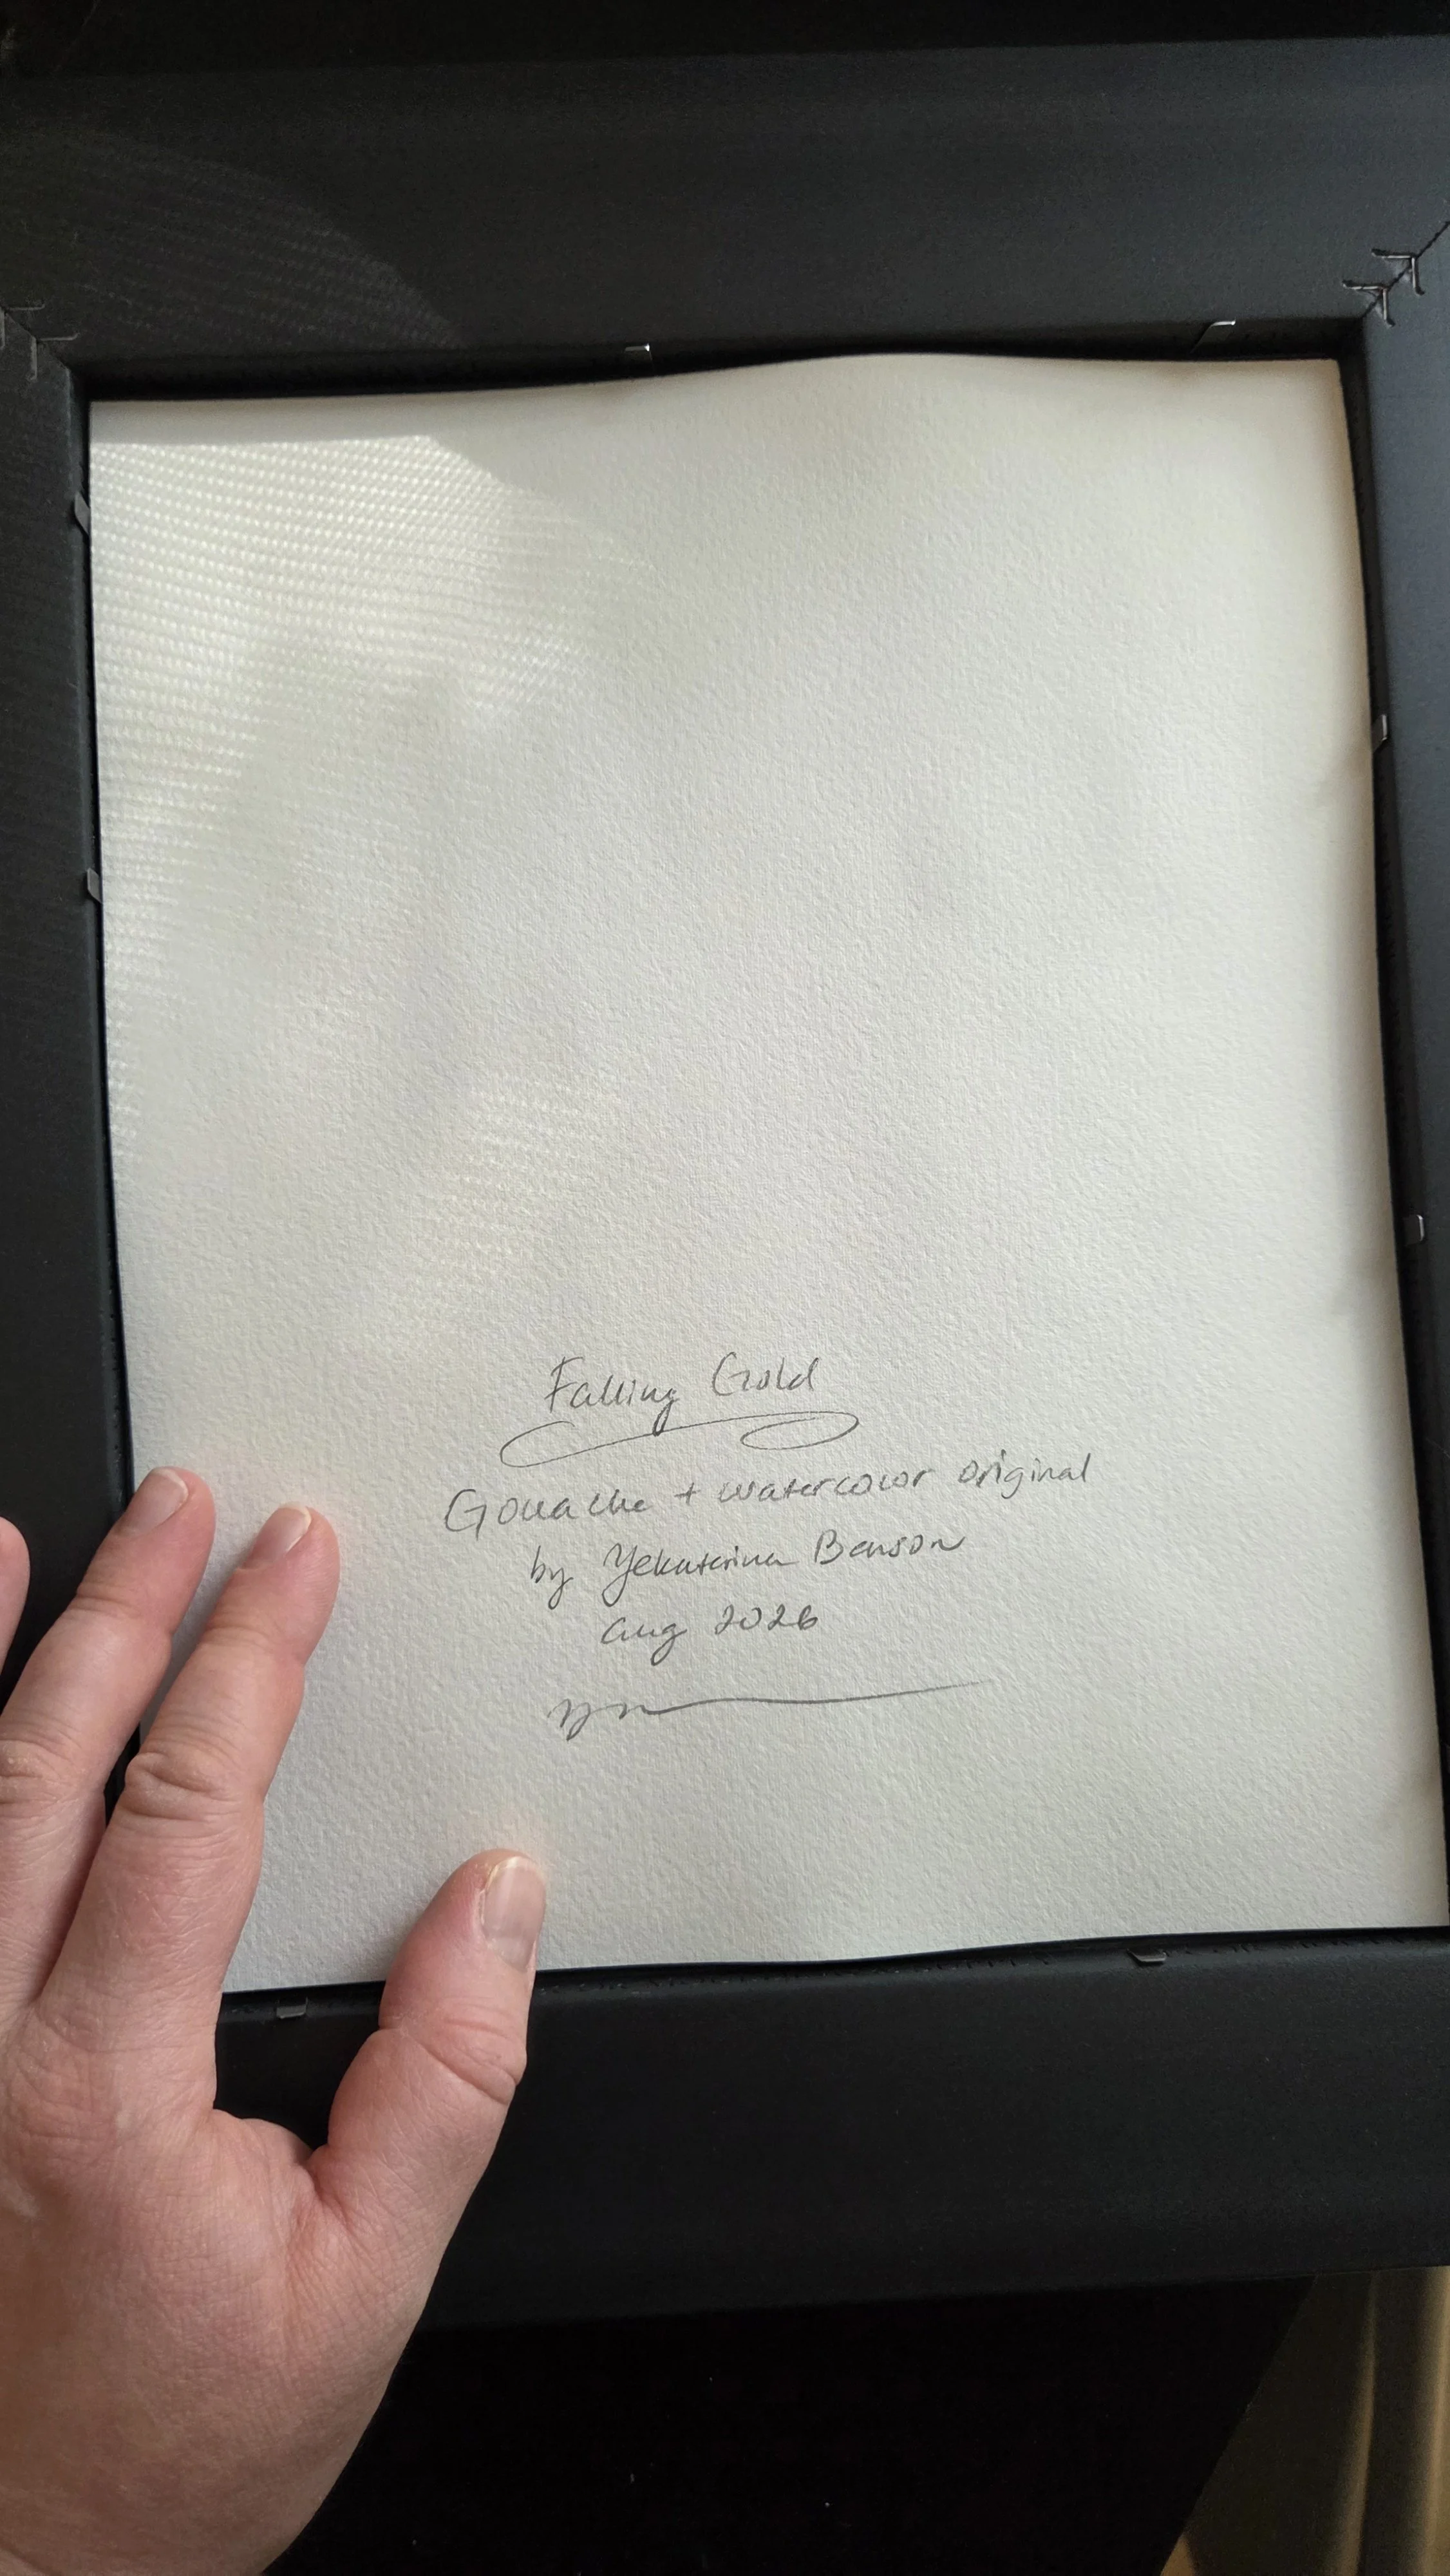 Falling Gold
Gouache + watercolor original
by Yekaterina Benson
Aug 2026